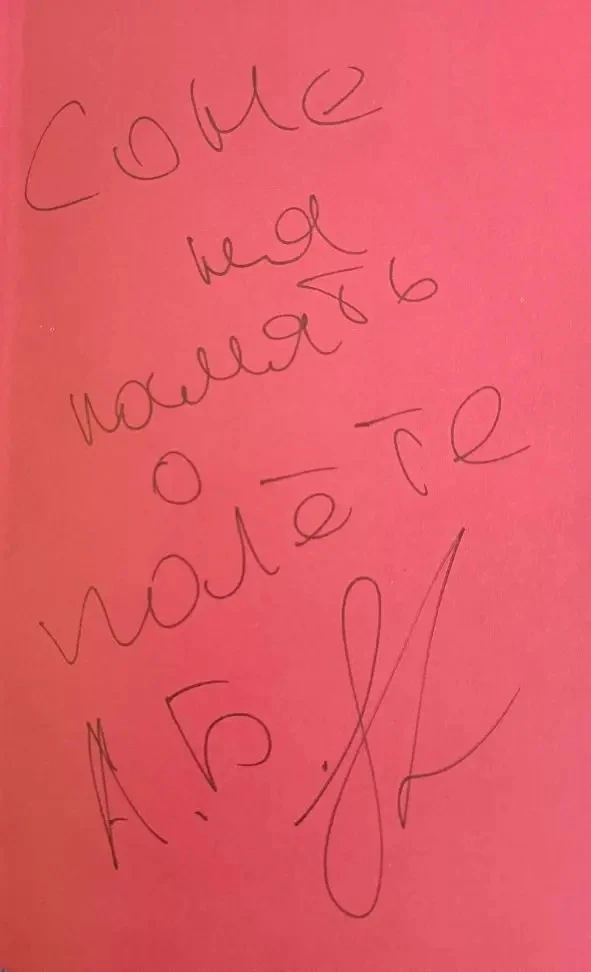 Соне
на
память
о
полёте
А.Б.